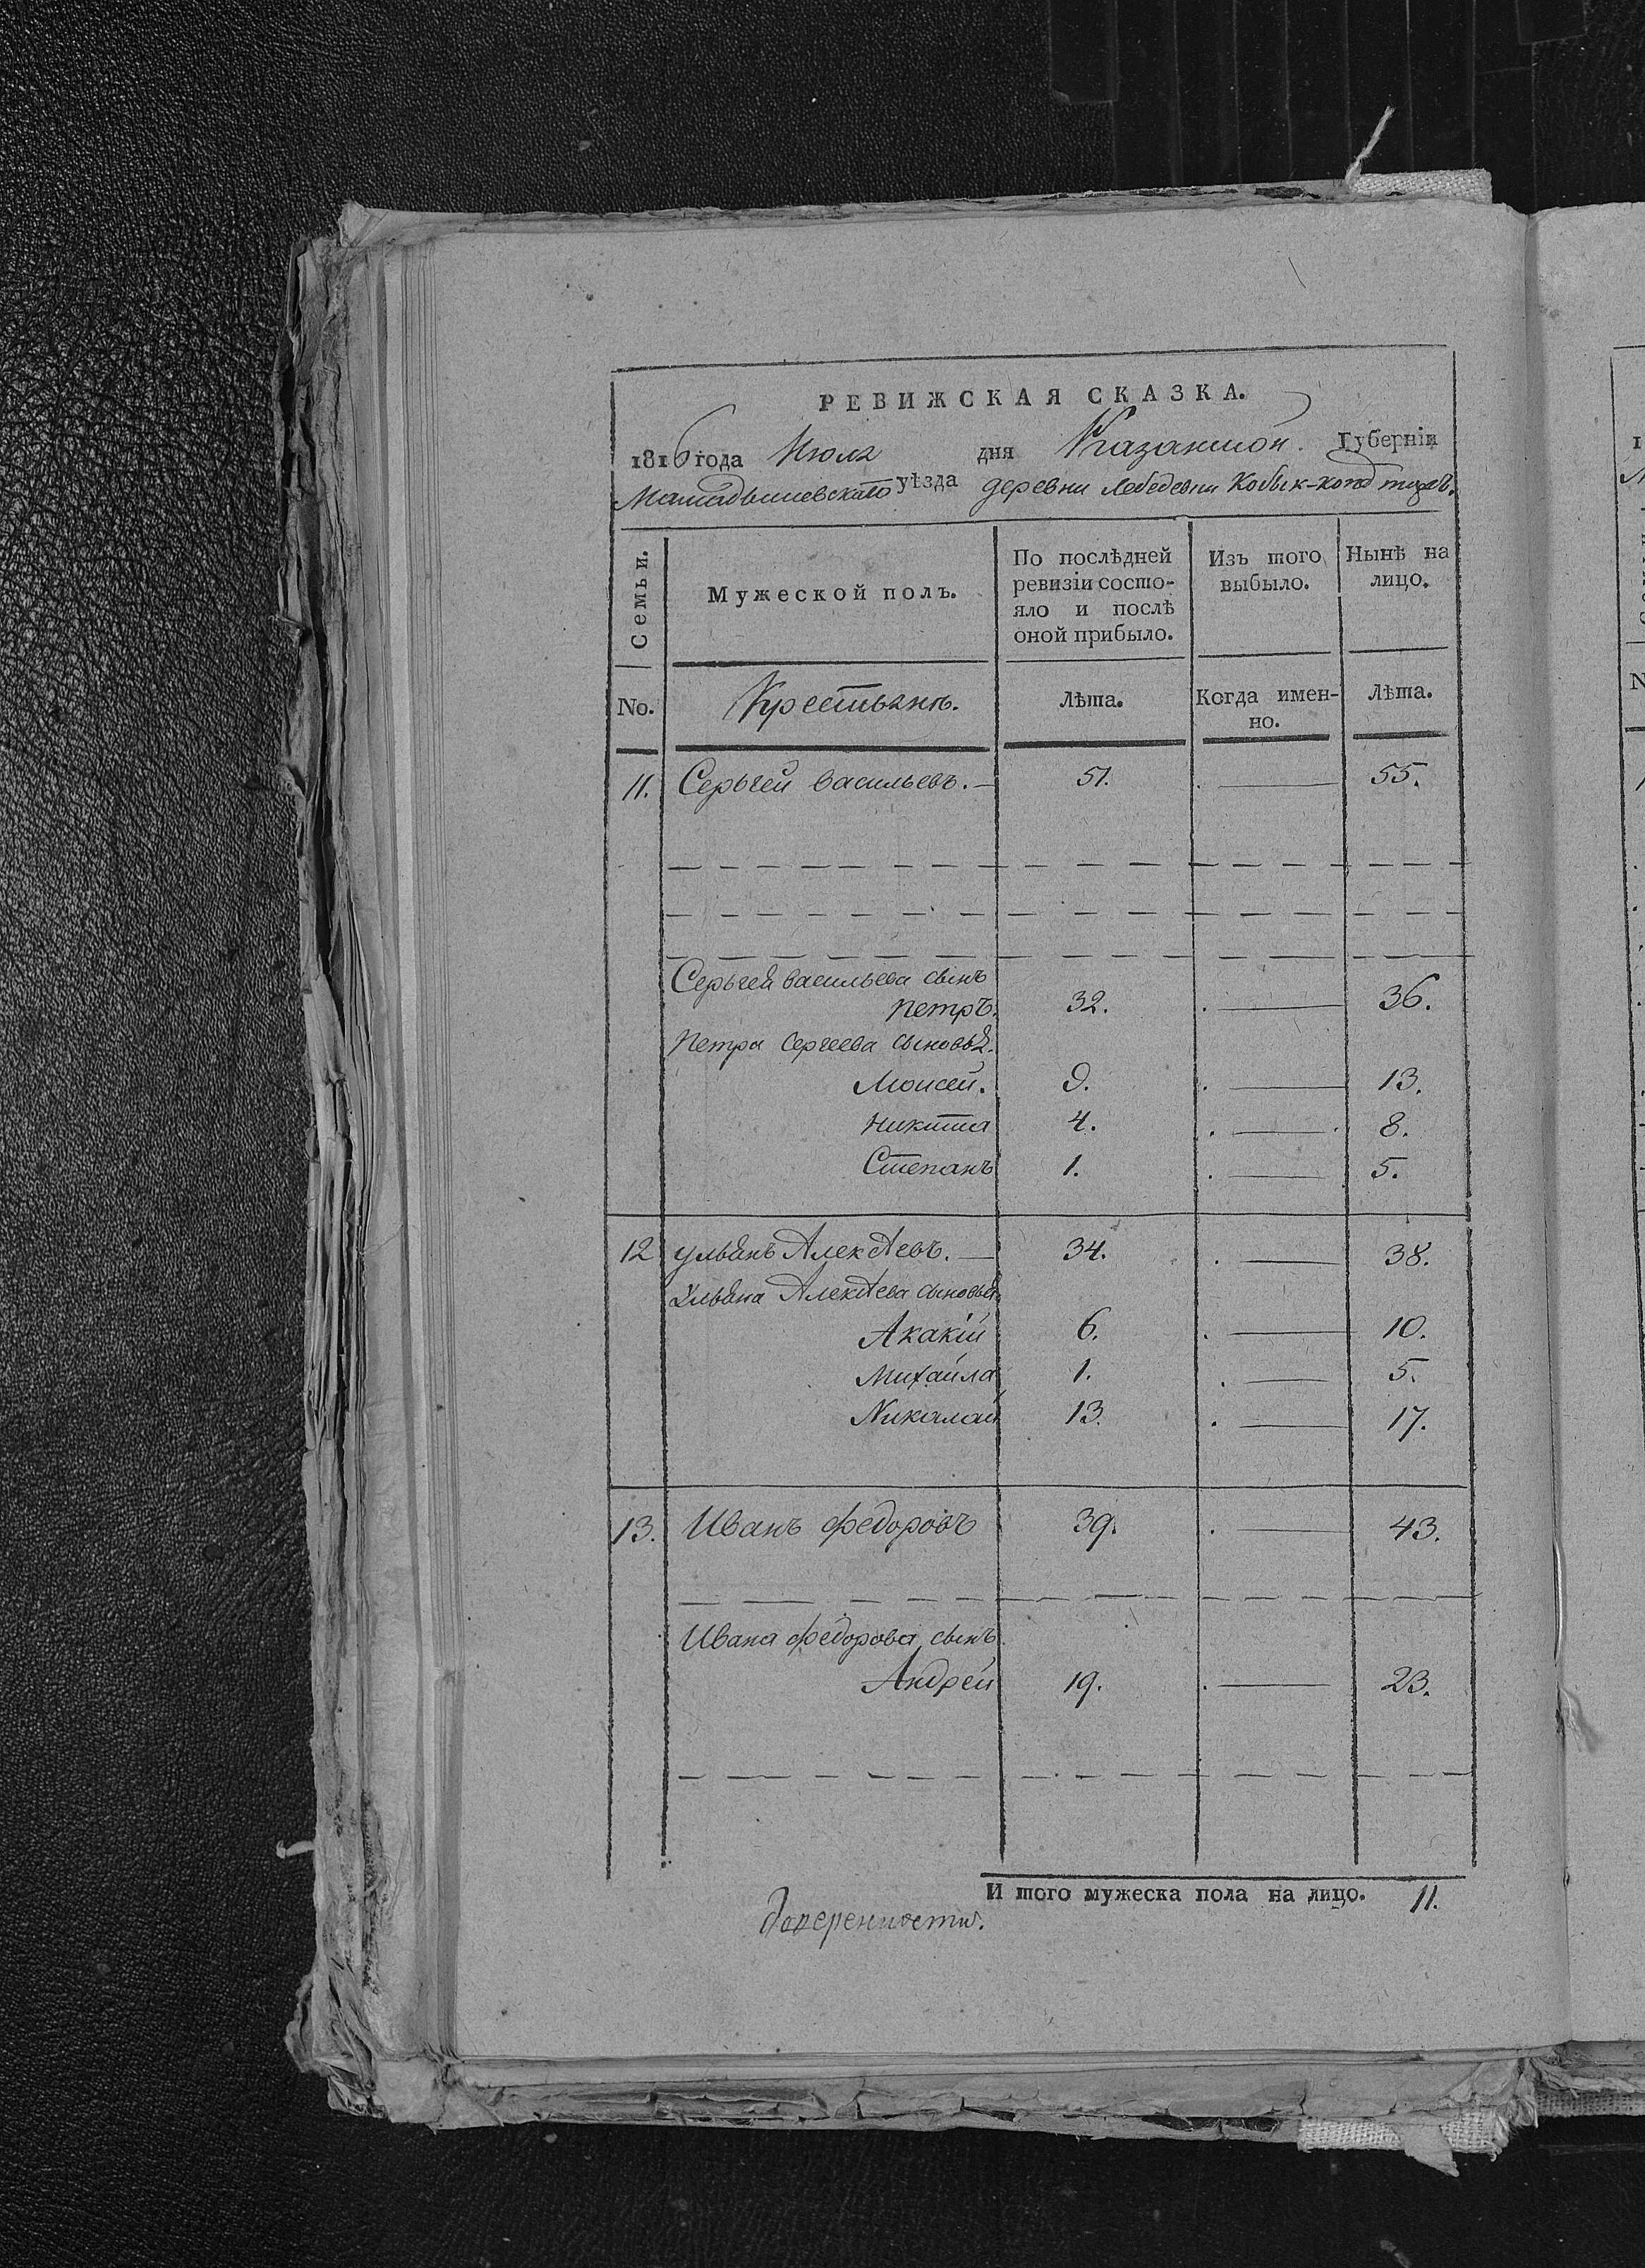 РЕВИЖСКАЯ СКАЗКА.
1816 года Июля дня Казанской Губерніи
Мамадышевскаго уѣзда деревни Лебедевки Кобык-копд тожъ.
Семьи. Мужеской полъ. По послѣдней ревизіи состо- яло и послѣ оной прибыло. Изъ того выбыло. Нынѣ на лицо.
No. Крестьянъ. Лѣта. Когда имен- но. Лѣта.
11. Серьгей Васильевъ. 51. 55.
Серьгея Васильева сынъ
Петръ. 32. 36.
Петра Сергеева сыновья.
Моисей. 9. 13.
Никита 4. 8.
Степанъ 1. 5.
12 Ульянъ Алексѣевъ. 34. 38.
Ульяна Алексѣева сыновья
Акакій 6. 10.
Михайла 1. 5.
Николай 13. 17.
13. Иванъ Федоровъ 39. 43.
Ивана Федорова сынъ
Андрей 19. 23.
И того мужеска пола на лицо. 11.